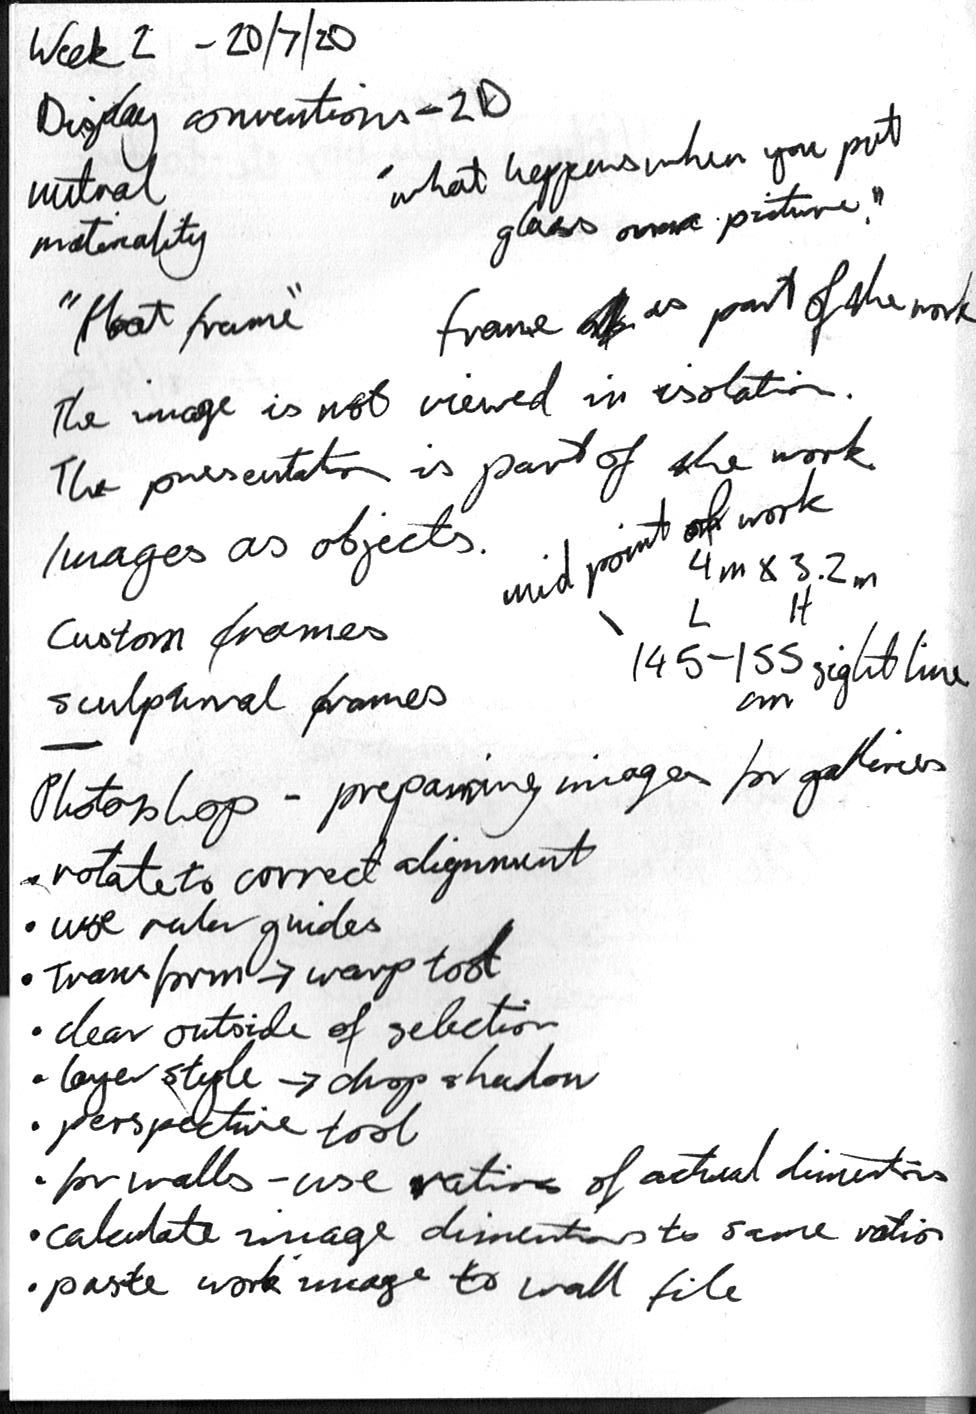 Week 2 - 20/7/20
Display conventions - 2D
mutual
materiality
"what happens when you put
glass over a picture."
"float frame"
frame as part of the work
The image is not viewed in isolation.
The presentation is part of the work
Images as objects.
mid point of work
4m x 3.2m
L H
145-155 sight line
cm
Custom frames
sculptural frames
Photoshop - preparing images for galleries
• rotate to correct alignment
• use ruler guides
• Transform → warp tool
• clear outside of selection
• layer style → drop shadow
• perspective tool
• for walls - use ratios of actual dimentions
• calculate image dimentions to same ratios
• paste work image to wall file